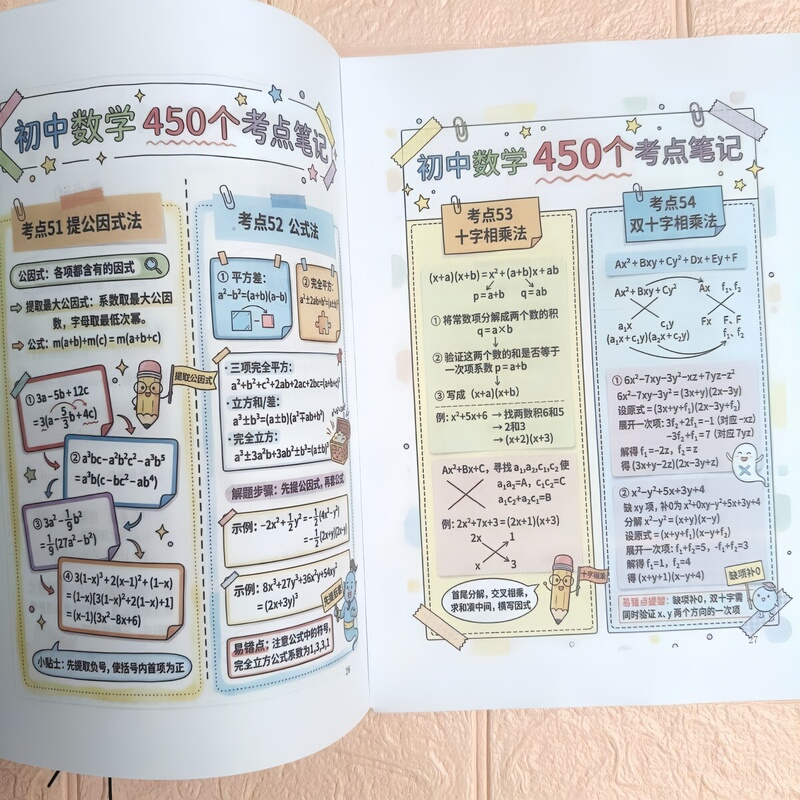 初中数学 450个考点笔记
考点51 提公因式法
公因式：各项都含有的因式
提取最大公因式：系数取最大公因
数，字母取最低次幂。
公式：m(a+b)+m(c)=m(a+b+c)
提取公因式
① 3a-5b+12c
=3(a-5/3b+4c)
② a³bc-a²b²c²-a³b⁵
=a³b(c-bc²-ab⁴)
③ 3a²-1/9b²
=1/9(27a²-b²)
④ 3(1-x)³+2(x-1)²+(1-x)
=(1-x)[3(1-x)²+2(1-x)+1]
=(x-1)(3x²-8x+6)
小贴士：先提取负号，使括号内首项为正
考点52 公式法
① 平方差：
a²-b²=(a+b)(a-b)
② 完全平方：
a²±2ab+b²=(a±b)²
三项完全平方：
a²+b²+c²+2ab+2ac+2bc=(a+b+c)²
立方和/差：
a³±b³=(a±b)(a²∓ab+b²)
完全立方：
a³±3a²b+3ab²±b³=(a±b)³
解题步骤：先提公因式，再套公式
示例：-2x²+1/2y²=-1/2(4x²-y²)
=-1/2(2x+y)(2x-y)
示例：8x³+27y³+36x²y+54xy²
=(2x+3y)³
易错点：注意公式中的符号，
完全立方公式系数为1,3,3,1
初中数学 450个考点笔记
考点53
十字相乘法
(x+a)(x+b)=x²+(a+b)x+ab
p=a+b q=ab
① 将常数项分解成两个数的积
q=a×b
② 验证这两个数的和是否等于
一次项系数 p=a+b
③ 写成 (x+a)(x+b)
例: x²+5x+6 → 找两数积6和5
→ 2和3
→ (x+2)(x+3)
Ax²+Bx+C, 寻找 a₁,a₂,c₁,c₂ 使
a₁a₂=A, c₁c₂=C
a₁c₂+a₂c₁=B
例: 2x²+7x+3=(2x+1)(x+3)
2x 1
x 3
首尾分解，交叉相乘，
求和凑中间，横写因式
十字相乘
考点54
双十字相乘法
Ax²+Bxy+Cy²+Dx+Ey+F
Ax²+Bxy+Cy² Ax f₁, f₂
a₁x c₁y Fx F、F
(a₁x+c₁y)(a₂x+c₂y) f₁、f₂
① 6x²-7xy-3y²-xz+7yz-z²
6x²-7xy-3y²=(3x+y)(2x-3y)
设原式=(3x+y+f₁)(2x-3y+f₂)
展开一次项: 3f₂+2f₁=-1 (对应 -xz)
-3f₂+f₁=7 (对应 7yz)
解得 f₁=-2z, f₂=z
得 (3x+y-2z)(2x-3y+z)
② x²-y²+5x+3y+4
缺 xy 项，补0为 x²+0xy-y²+5x+3y+4
分解 x²-y²=(x+y)(x-y)
设原式=(x+y+f₁)(x-y+f₂)
展开一次项: f₁+f₂=5, -f₁+f₂=3
解得 f₁=1, f₂=4
得 (x+y+1)(x-y+4)
缺项补0
易错点提醒：缺项补0，双十字需
同时验证 x、y 两个方向的一次项